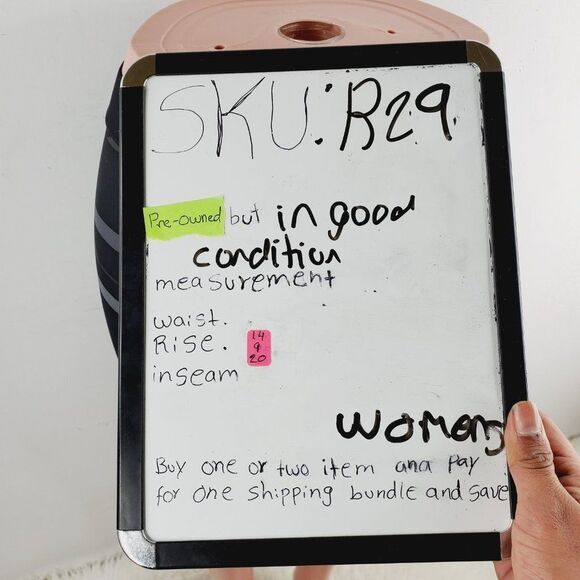 SKU: R29
Pre-owned but in good
condition
measurement
waist. 14
Rise. 9
inseam 20
womens
Buy one or two item and Pay
for one shipping bundle and save